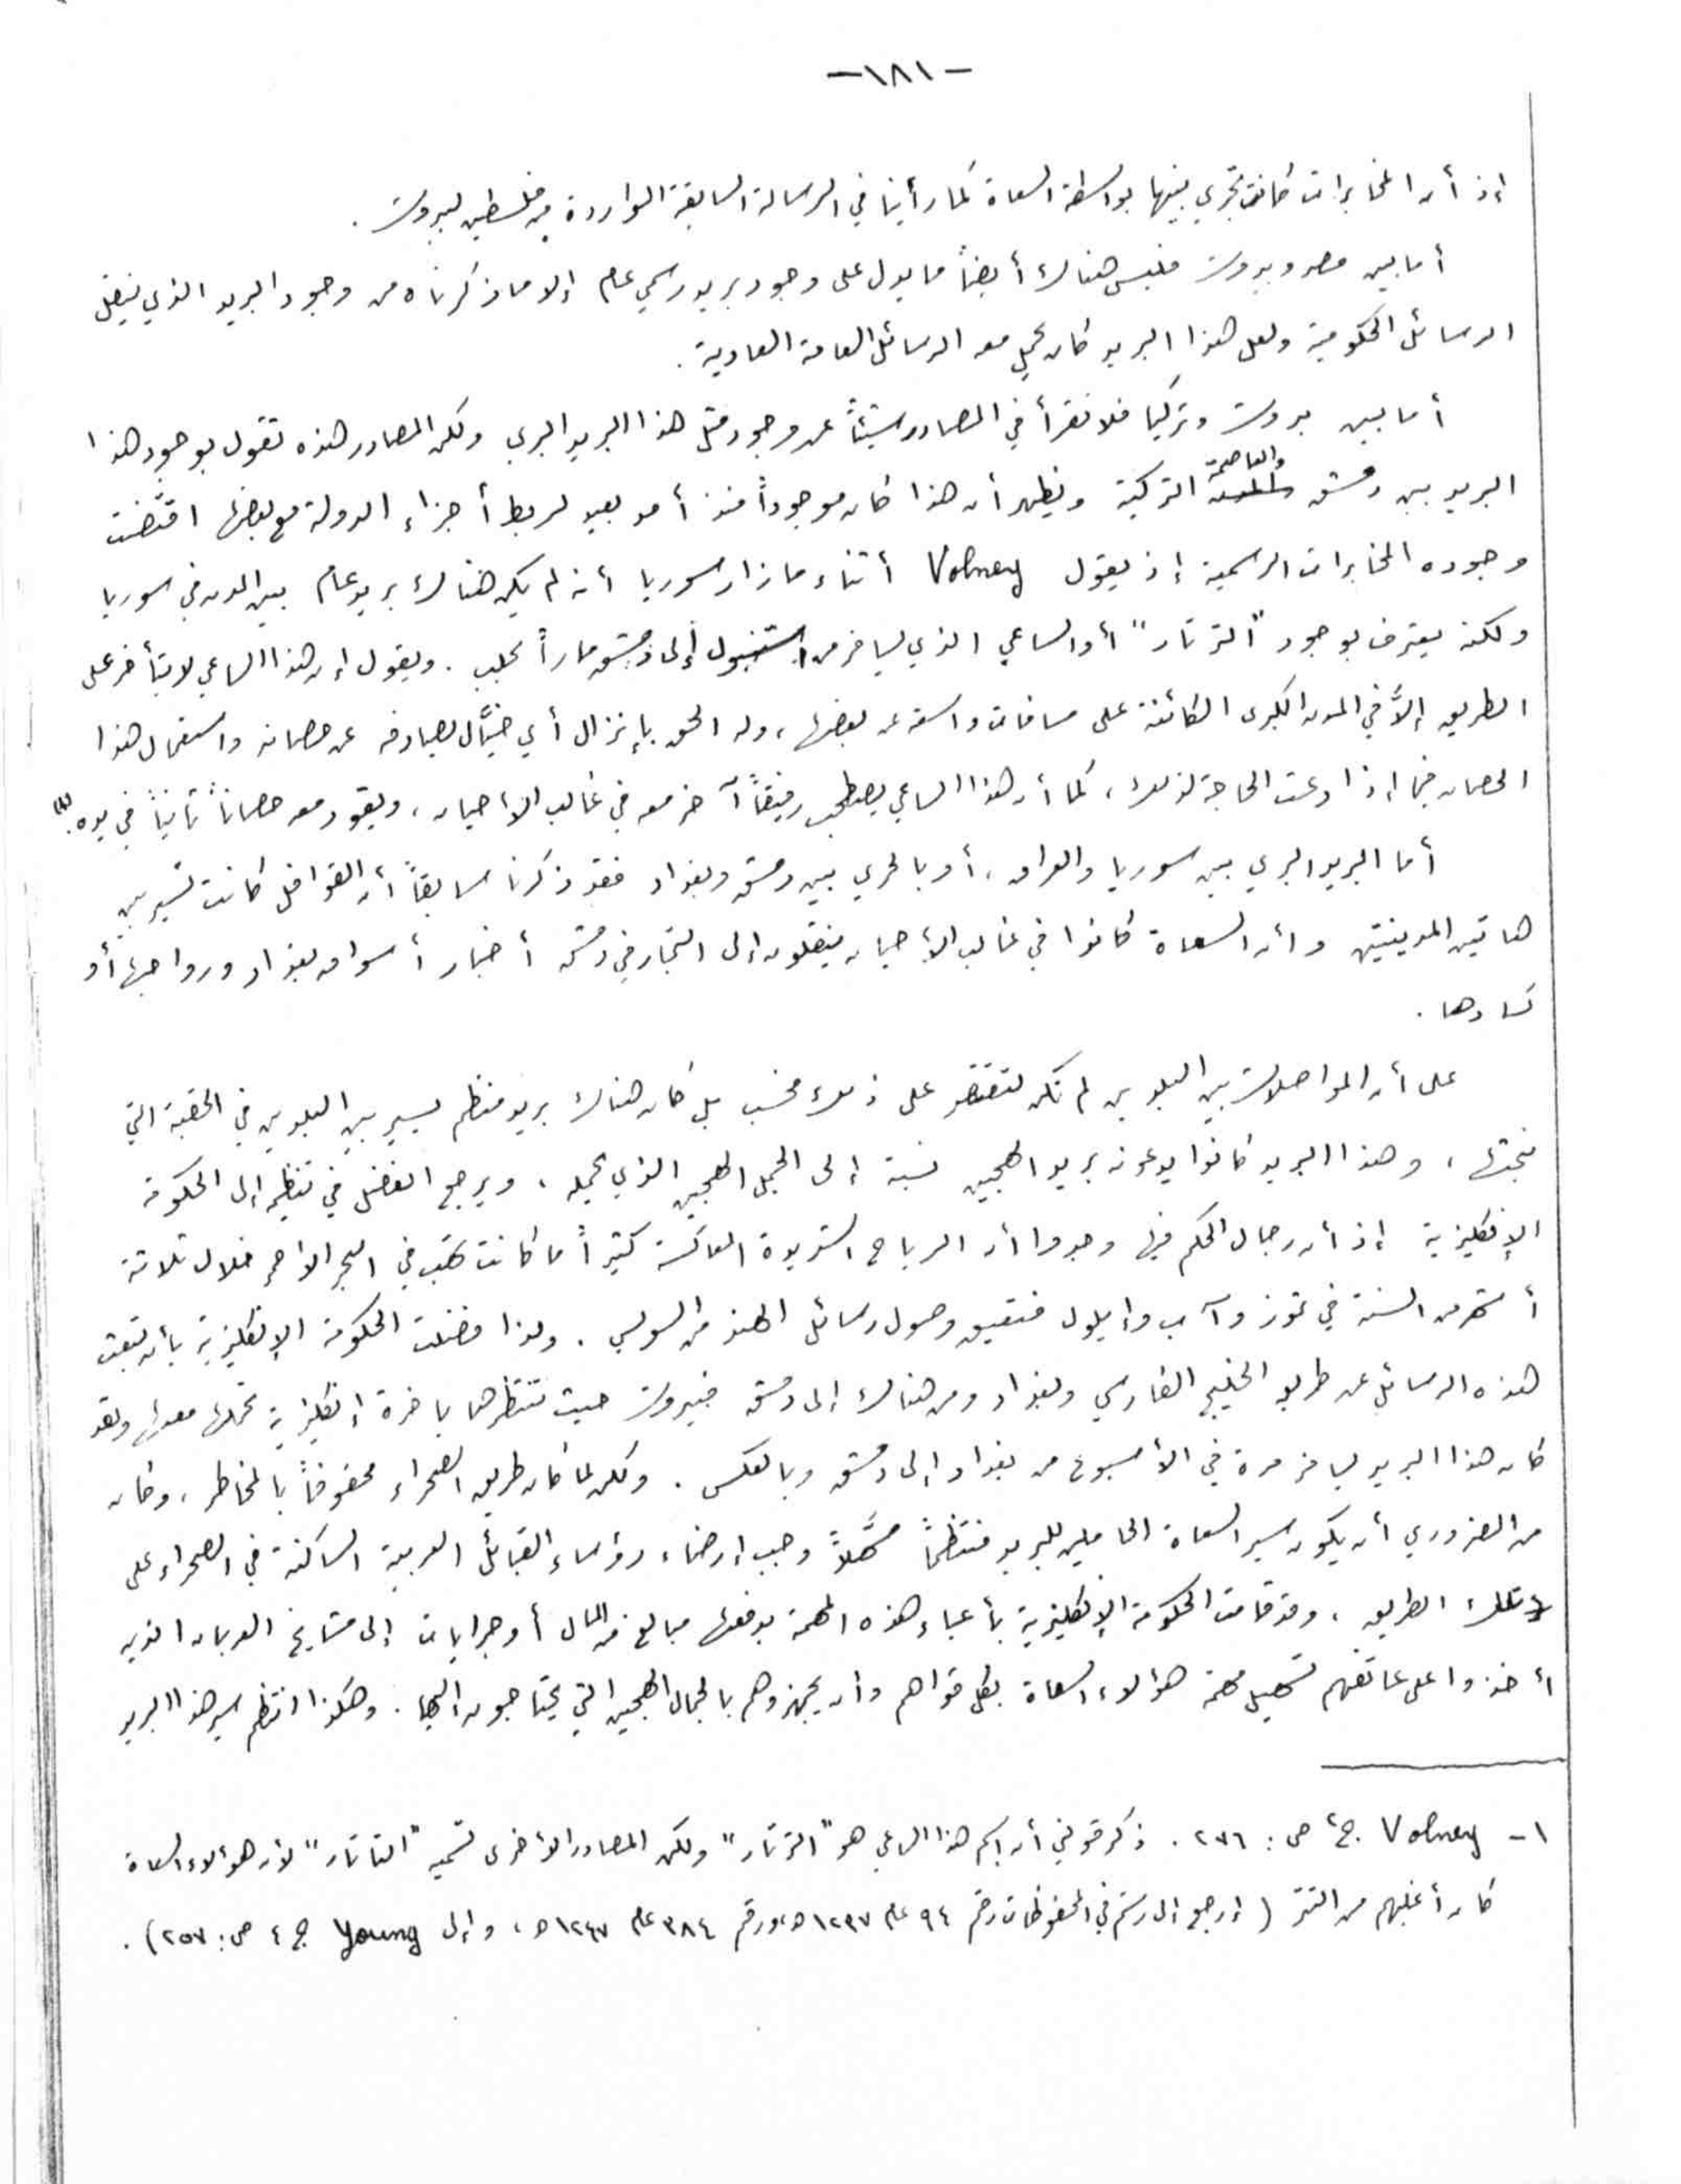 -١٨١-
إذ أن المخابرات كانت تجري بينها بواسطة السعاة كما رأينا في الرسالة السابقة الواردة من فلسطين لبيروت .
أما بين مصر وبيروت فليس هناك أيضاً ما يدل على وجود بريد رسمي عام إلا ما ذكرناه من وجود البريد الذي ينقل
الرسائل الحكومية ولعل هذا البريد كان يحمل معه الرسائل العامة العادية .
أما بين بيروت وتركيا فلا نقرأ في المصادر شيئاً عن وجود مثل هذا البريد البري ولكن المصادر هذه تقول بوجود هذا
البريد بين دمشق والعاصمة التركية ويظهر أن هذا كان موجوداً منذ أمد بعيد لربط أجزاء الدولة مع بعضها اقتضت
وجوده المخابرات الرسمية إذ يقول Volney أثناء ما زار سوريا أنه لم يكن هناك بريد عام بين المدن في سوريا
ولكنه يعترف بوجود "الترتار" أو الساعي الذي يسافر من استنبول إلى دمشق ماراً بحلب . ويقول إن هذا الساعي لا يتأخر على
الطريق إلاَّ في المدن الكبرى الكائنة على مسافات واسعة عن بعضها ، وله الحق بإنزال أي خيَّال يصادفه عن حصانه واستعمال هذا
الحصان فيما إذا دعت الحاجة لذلك ، كما أن هذا الساعي يصطحب رفيقاً آخر معه في غالب الأحيان ، ويقود معه حصاناً ثانياً في يده .(١)
أما البريد البري بين سوريا والعراق ، أو بالحري بين دمشق وبغداد فقد ذكرنا سابقاً أن القوافل كانت تسير بين
هاتين المدينتين وأن السعاة كانوا في غالب الأحيان ينقلون إلى التجار في دمشق أخبار أسواق بغداد ورواجها أو
كسادها .
على أن المواصلات بين البلدين لم تكن لتقتصر على ذلك فحسب بل كان هناك بريد منظم يسير بين البلدين في الحقبة التي
نبحثها ، وهذا البريد كانوا يدعونه بريد الهجين نسبة إلى الجمل الهجين الذي يحمله ، ويرجع الفضل في تنظيمه إلى الحكومة
الإنكليزية إذ أن رجال الحكم فيها وجدوا أن الرياح الشديدة العاكسة كثيراً ما كانت تهب في البحر الأحمر خلال ثلاثة
أشهر من السنة في تموز وآب وإيلول فتعيق وصول رسائل الهند من السويس . ولذا فضلت الحكومة الإنكليزية بأن تبعث
هذه الرسائل عن طريق الخليج الفارسي وبغداد ومن هناك إلى دمشق فبيروت حيث تنتظرها باخرة إنكليزية تحملها معها ولقد
كان هذا البريد يسافر مرة في الأسبوع من بغداد إلى دمشق وبالعكس . ولكن لما كان طريق الصحراء محفوفاً بالمخاطر ، وكان
من الضروري أن يكون سير السعاة الحاملين للبريد منتظماً مسهّلاً وجب إرضاء رؤساء القبائل العربية الساكنة في الصحراء على
تلك الطريق ، وقد قامت الحكومة الإنكليزية بأعباء هذه المهمة بدفعها مبالغ من المال أو جرايات إلى مشايخ العربان الذين
أخذوا على عاتقهم تسهيل مهمة هؤلاء السعاة بكل قواهم وأن يجهزوهم بالجمال الهجين التي يحتاجون إليها . وهكذا انتظم سير هذا البريد
١- Volney ج٢ ص : ٢٧٦ . ذكر فولني أن اسم هذا الساعي هو "الترتار" ولكن المصادر الأخرى تسميه "التاتار" لأن هؤلاء السعاة
كان أغلبهم من التتر ( إرجع إلى رستم في المحفوظات رقم ٩٤ عام ١٢٣٧ ه، ورقم ٣٨٤ عام ١٢٤٧ ه ، وإلى Young ج ٤ ص : ٢٥٧) .